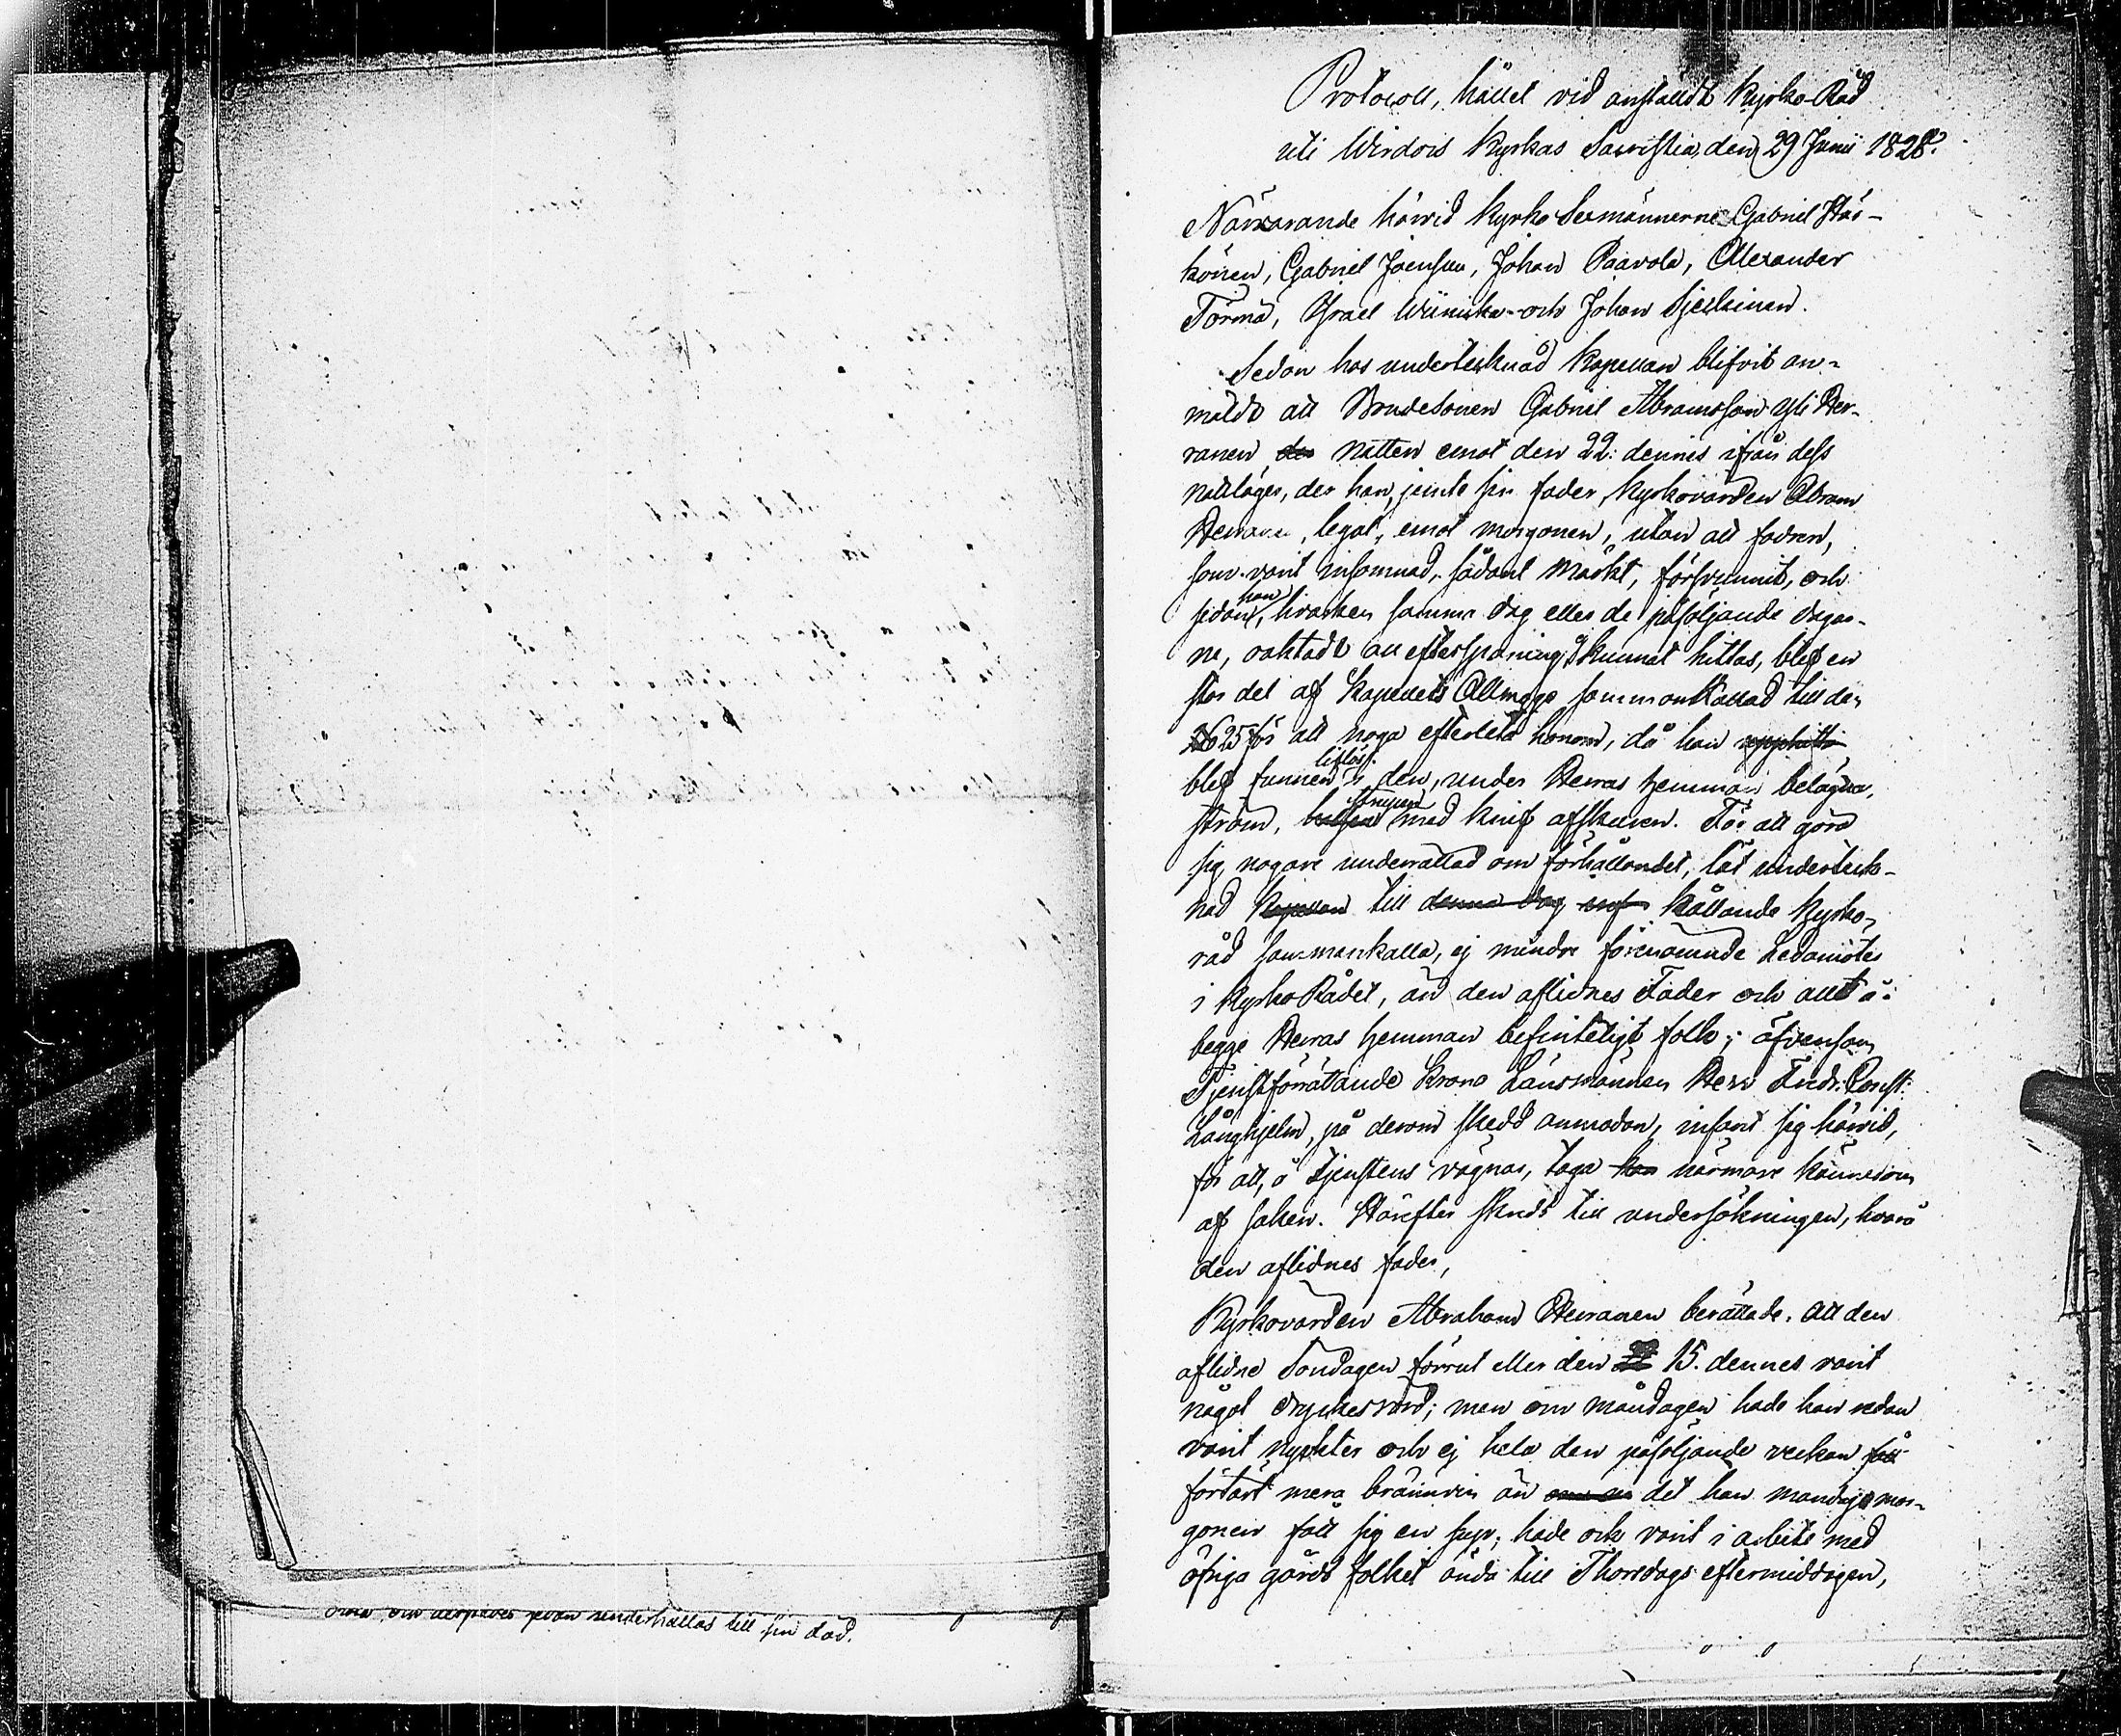 Protocoll, hållet vid anstäldt Kyrko-Råd
uti Wirdois Kyrkas Sacristia, den 29 Junii 1828.
Närvarande härvid Kyrko Sexmännerne Gabriel Här-
könen, Gabriel Joensuu, Johan Paavola, Alexander
Törmä, Israel Wiiniska och Johan
Sedan hos undertecknad Kapellan blifvit an-
mäldt att Bondesonen Gabriel Abramsson Yli Her-
ranen, natten emot den 22: dennes ifrån dess
nattläger, der han, jemte sin fader, Kyrkovärden Abram
Herranen, legat, emot morgonen, utan att fadren,
som varit insomnad, sådant märkt, försvunnit, och
sedan han, hvarken samma dag eller de påföljande dagar-
ne, oaktadt all efterspaning, kunnat hittas, blef en
stor del af Kapellets Allmoge sammankallad till den
25 för att noga efterleta honom, då han upphitta
blef funnen liflös i den, under Herras hemman belägna,
ström, halsen strupen med knif afskuren. För att göra
sig nogare underrättad om förhållandet, lät underteck-
nad Kapellan till denna dag hållande Kyrko-
råd sammankalla, ej mindre förenämnde Ledamöter
i Kyrko Rådet, än den aflidnes Fader och allt å
begge Herras hemman befinteligt folk; äfvensom
Tjenstförrättande Krono Länsmannen Herr Fredr. Const:
Långhjelm, på derom skedd anmodan, infant sig härvid,
för att, å tjenstens vägnar, taga närmare kännedom
af saken. Härefter skreds till undersökningen, hvarå
den aflidnes fader,
Kyrkovärden Abraham Herranen berättade: att den
aflidne Söndagen förrut eller den 15. dennes varit
något dryckesvard; men om måndagen hade han redan
varit nykter och ej hela den påföljande veckan
förtärt mera brännvin än det han mondags mor-
gonen fått sig en sup; hade ock varit i arbete med
öfriga gårds folket ända till Thorsdags eftermiddagen,
underhållas till sin död.